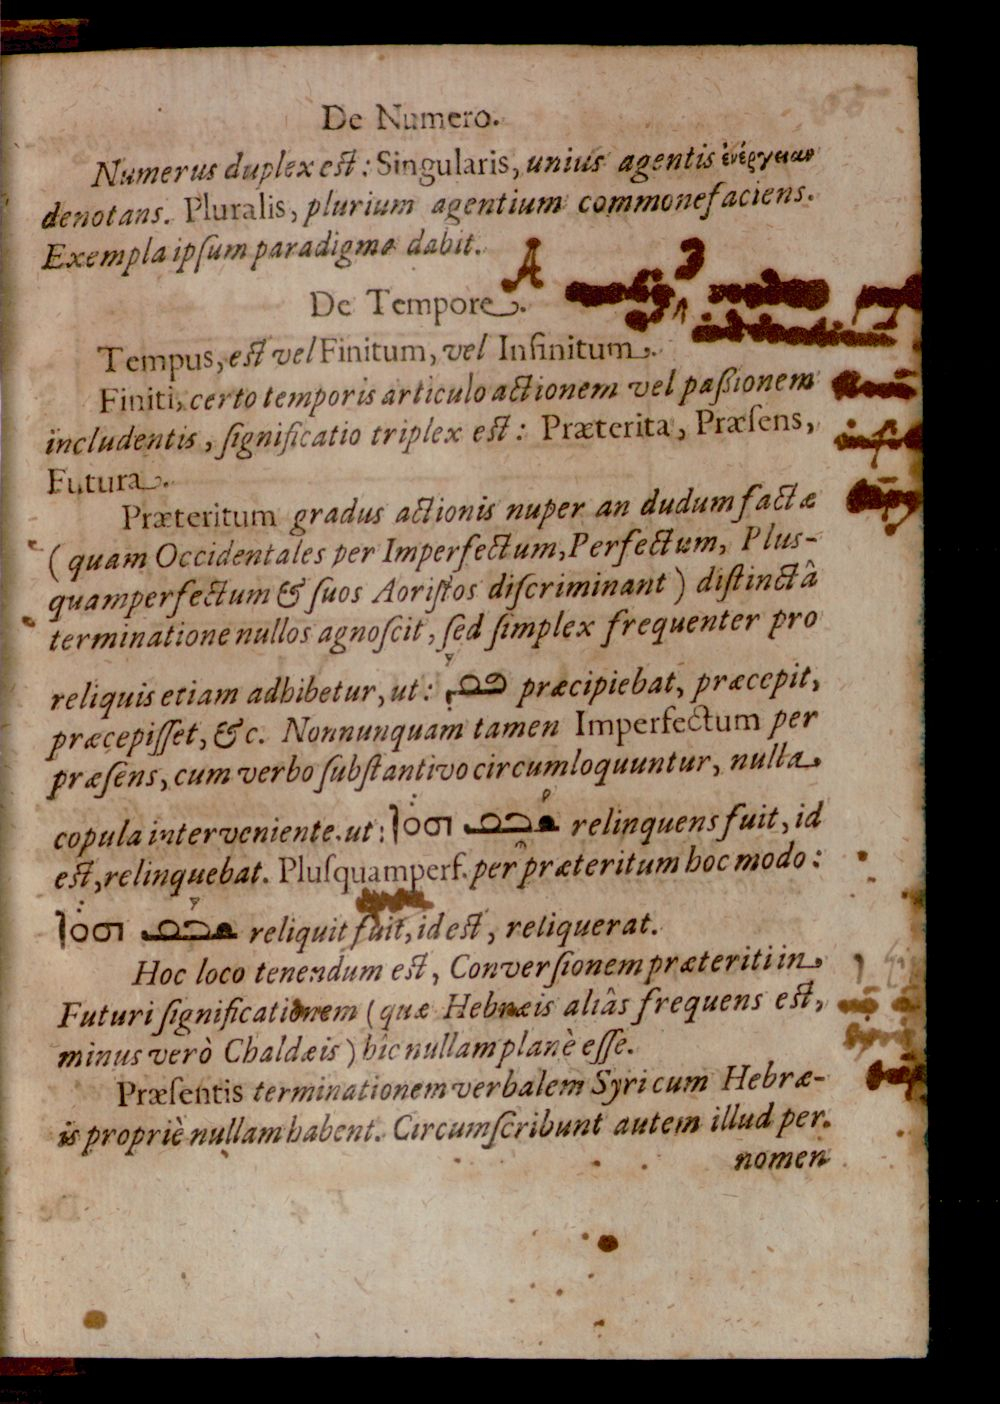 De Numero.
Numerus duplex est: Singularis, unius agentis ἐνέργειαν
denotans. Pluralis, plurium agentium commonefaciens.
Exempla ipsum paradigma dabit.
De Tempore.
Tempus, est vel Finitum, vel Infinitum.
Finiti, certo temporis articulo actionem vel paßionem
includentis, significatio triplex est: Præterita, Præsens,
Futura.
Præteritum gradus actionis nuper an dudum factæ
(quam Occidentales per Imperfectum, Perfectum, Plus-
quamperfectum & suos Aoristos discriminant) distinctâ
terminatione nullos agnoscit, sed simplex frequenter pro
reliquis etiam adhibetur, ut: præcipiebat, præcepit,
præcepisset, &c. Nonnunquam tamen Imperfectum per
præsens, cum verbo substantivo circumloquuntur, nulla
copula interveniente. ut: relinquens fuit, id
est, relinquebat. Plusquamperf. per præteritum hoc modo:
reliquit fuit, id est, reliquerat.
Hoc loco tenendum est, Conversionem præteriti in
Futuri significationem (quæ Hebræis aliâs frequens est,
minus verò Chaldæis) hîc nullam planè esse.
Præsentis terminationem verbalem Syri cum Hebræ-
is propriè nullam habent. Circumscribunt autem illud per
nomen